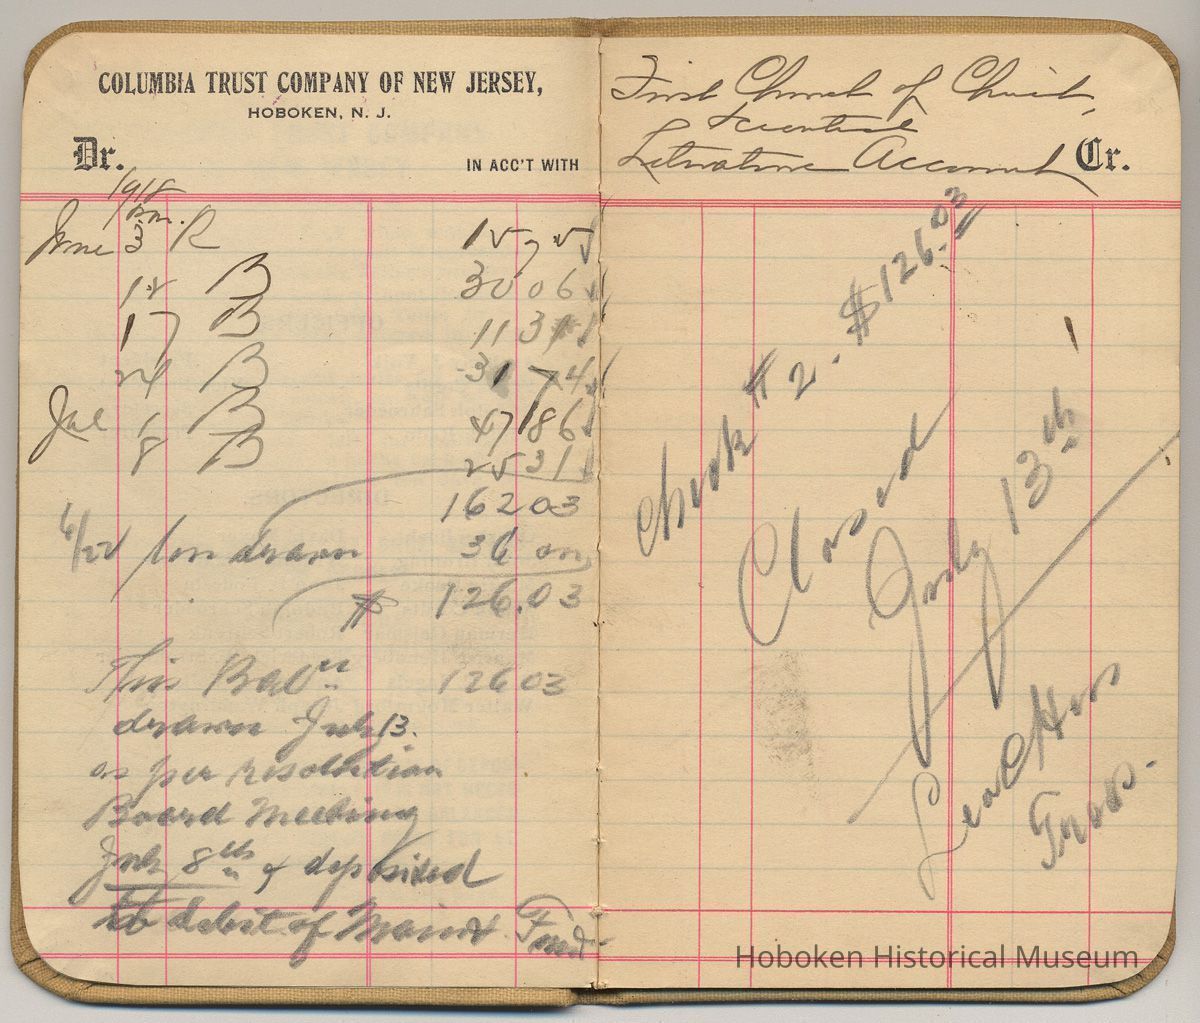 COLUMBIA TRUST COMPANY OF NEW JERSEY,
HOBOKEN, N. J.
Dr.
IN ACC'T WITH
1918
June 3 R 15 75
12 B 30 06
17 B 11 31
24 B 31 74
Jul 1 B 47 86
8 B 25 31
162 03
6/22 drawn 36 00
$ 126.03
This Bal 126 03
drawn July 13.
as per resolution
Board Meeting
July 8th & deposited
to debit of Maint Fund
First Church of Christ,
Scientist
Literature Account
Cr.
Check # 2 - $126.03
Closed
July 13th
Treas.
Hoboken Historical Museum